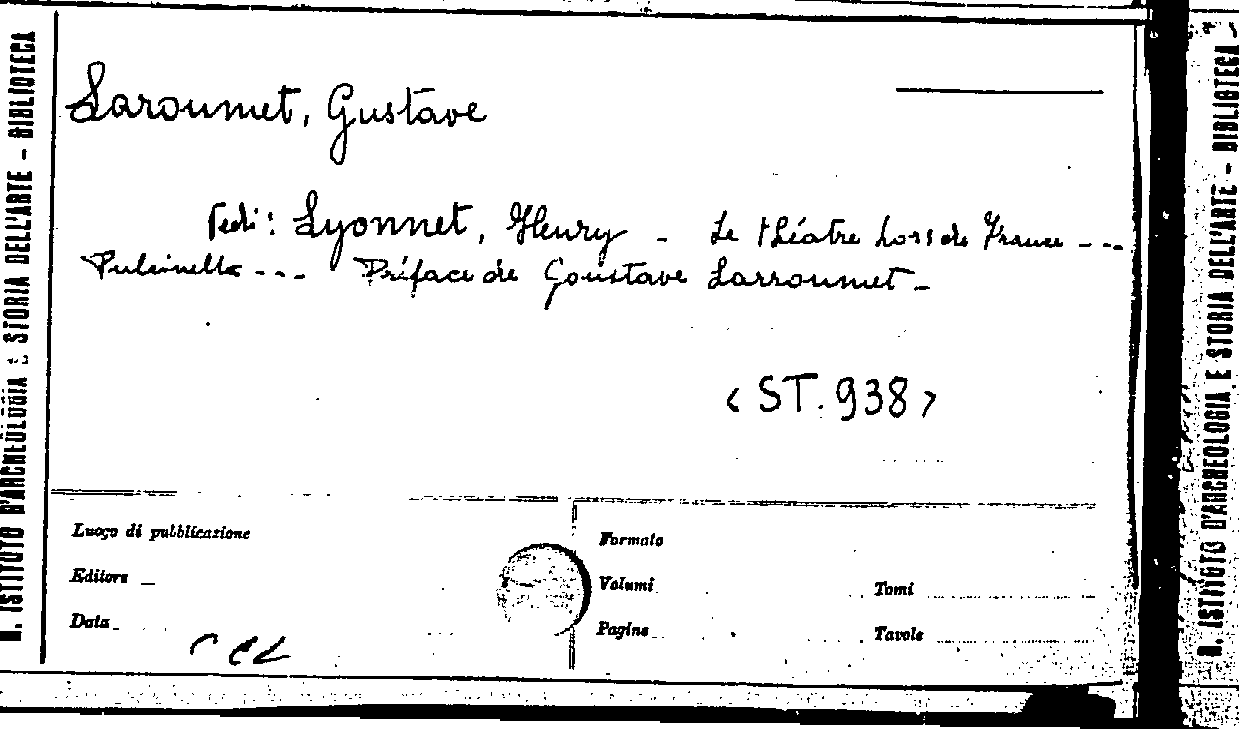 R. ISTITUTO D'ARCHEOLOGIA E STORIA DELL'ARTE - BIBLIOTECA
Laroumet, Gustave
Vedi: Lyonnet, Henry - Le théatre hors de France ---
Pulcinella --- Préface de Goustave Larroumet -
< ST. 938 >
Luogo di pubblicazione
Editore
Data
Formato
Volumi
Tomi
Pagine
Tavole
R. ISTITUTO D'ARCHEOLOGIA E STORIA DELL'ARTE - BIBLIOTECA